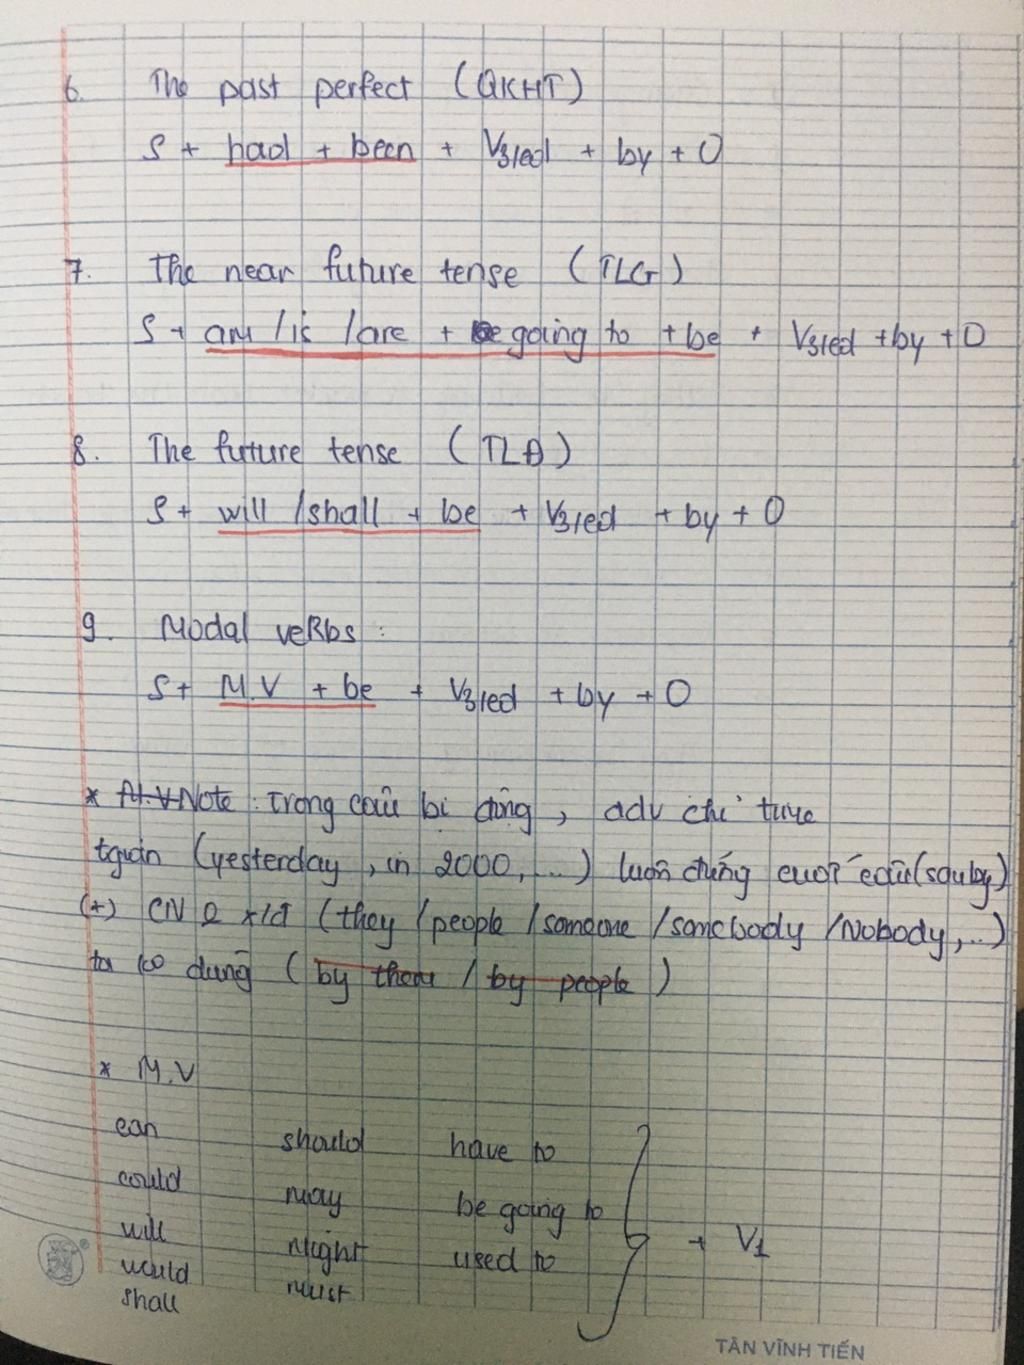 6. The past perfect (QKHT)
S + had + been + V3/ed + by + O
7. The near future tense (TLG)
S + am /is /are + going to + be + V3/ed + by + O
8. The future tense (TLĐ)
S + will /shall + be + V3/ed + by + O
9. Modal veRbs :
S + M.V + be + V3/ed + by + O
* M.V Note : Trong câu bị động, adv chỉ
tgian (yesterday, in 2000, ...) luôn đứng cuối câu (sau by)
(+) CN 0 xđ (they /people /someone /somebody /Nobody, ...)
ta ko dùng (by them / by people)
* M.V
can should have to
could may be going to
will Might used to + V1
would must
shall
TÂN VĨNH TIẾN